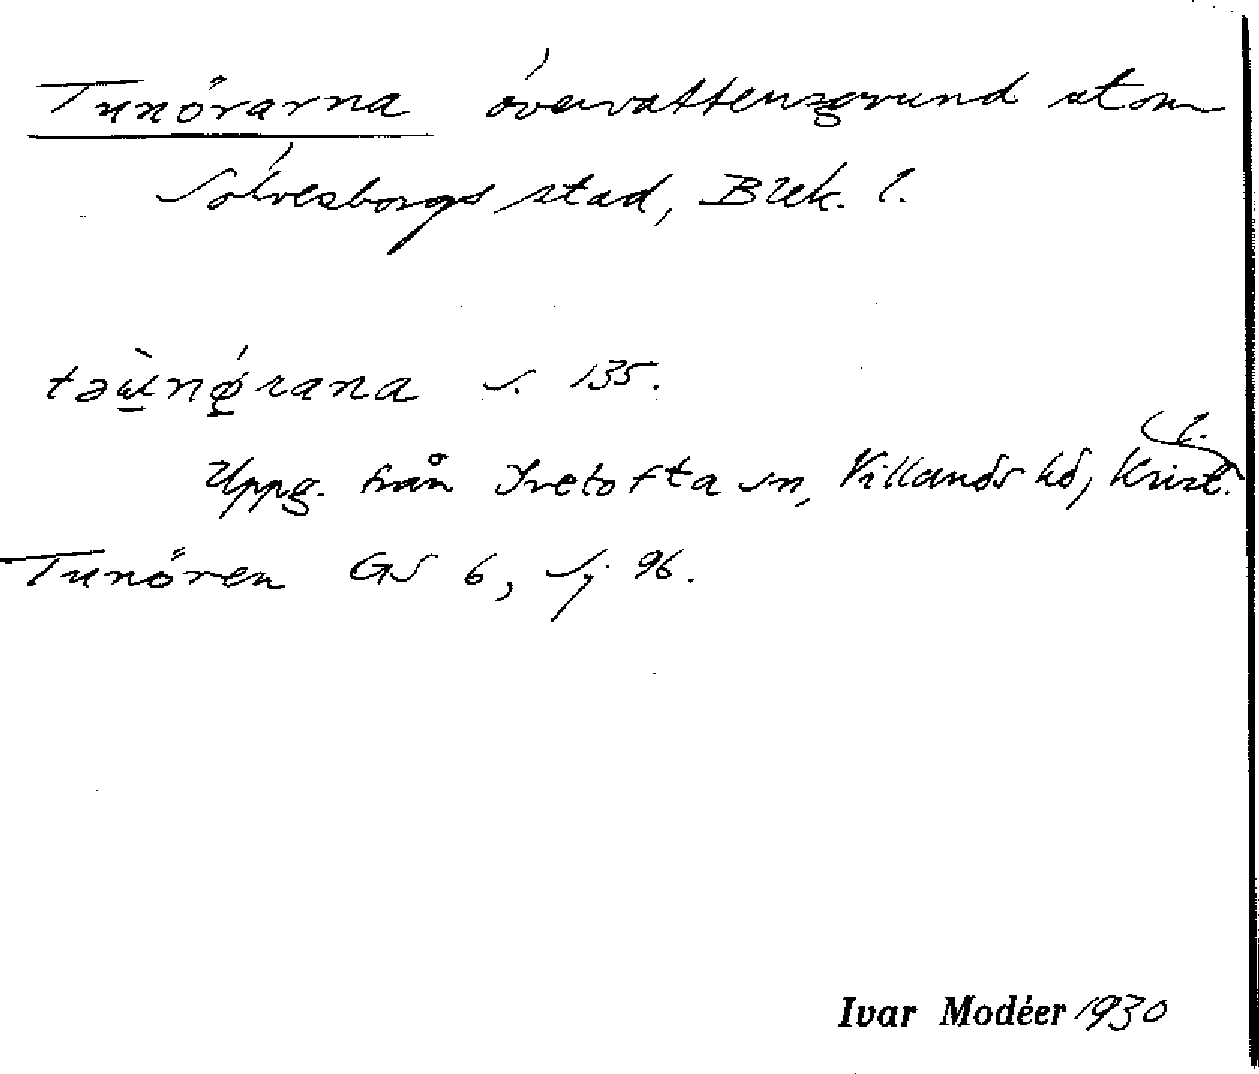 Tunörarna övervattensgrund utom
Sölvesborgs stad, Blek. l.
s. 135.
Uppg. från Ivetofta sn, Villands hd, Krist. l.
Tunören GS 6, Sj 96.
Ivar Modéer 1930